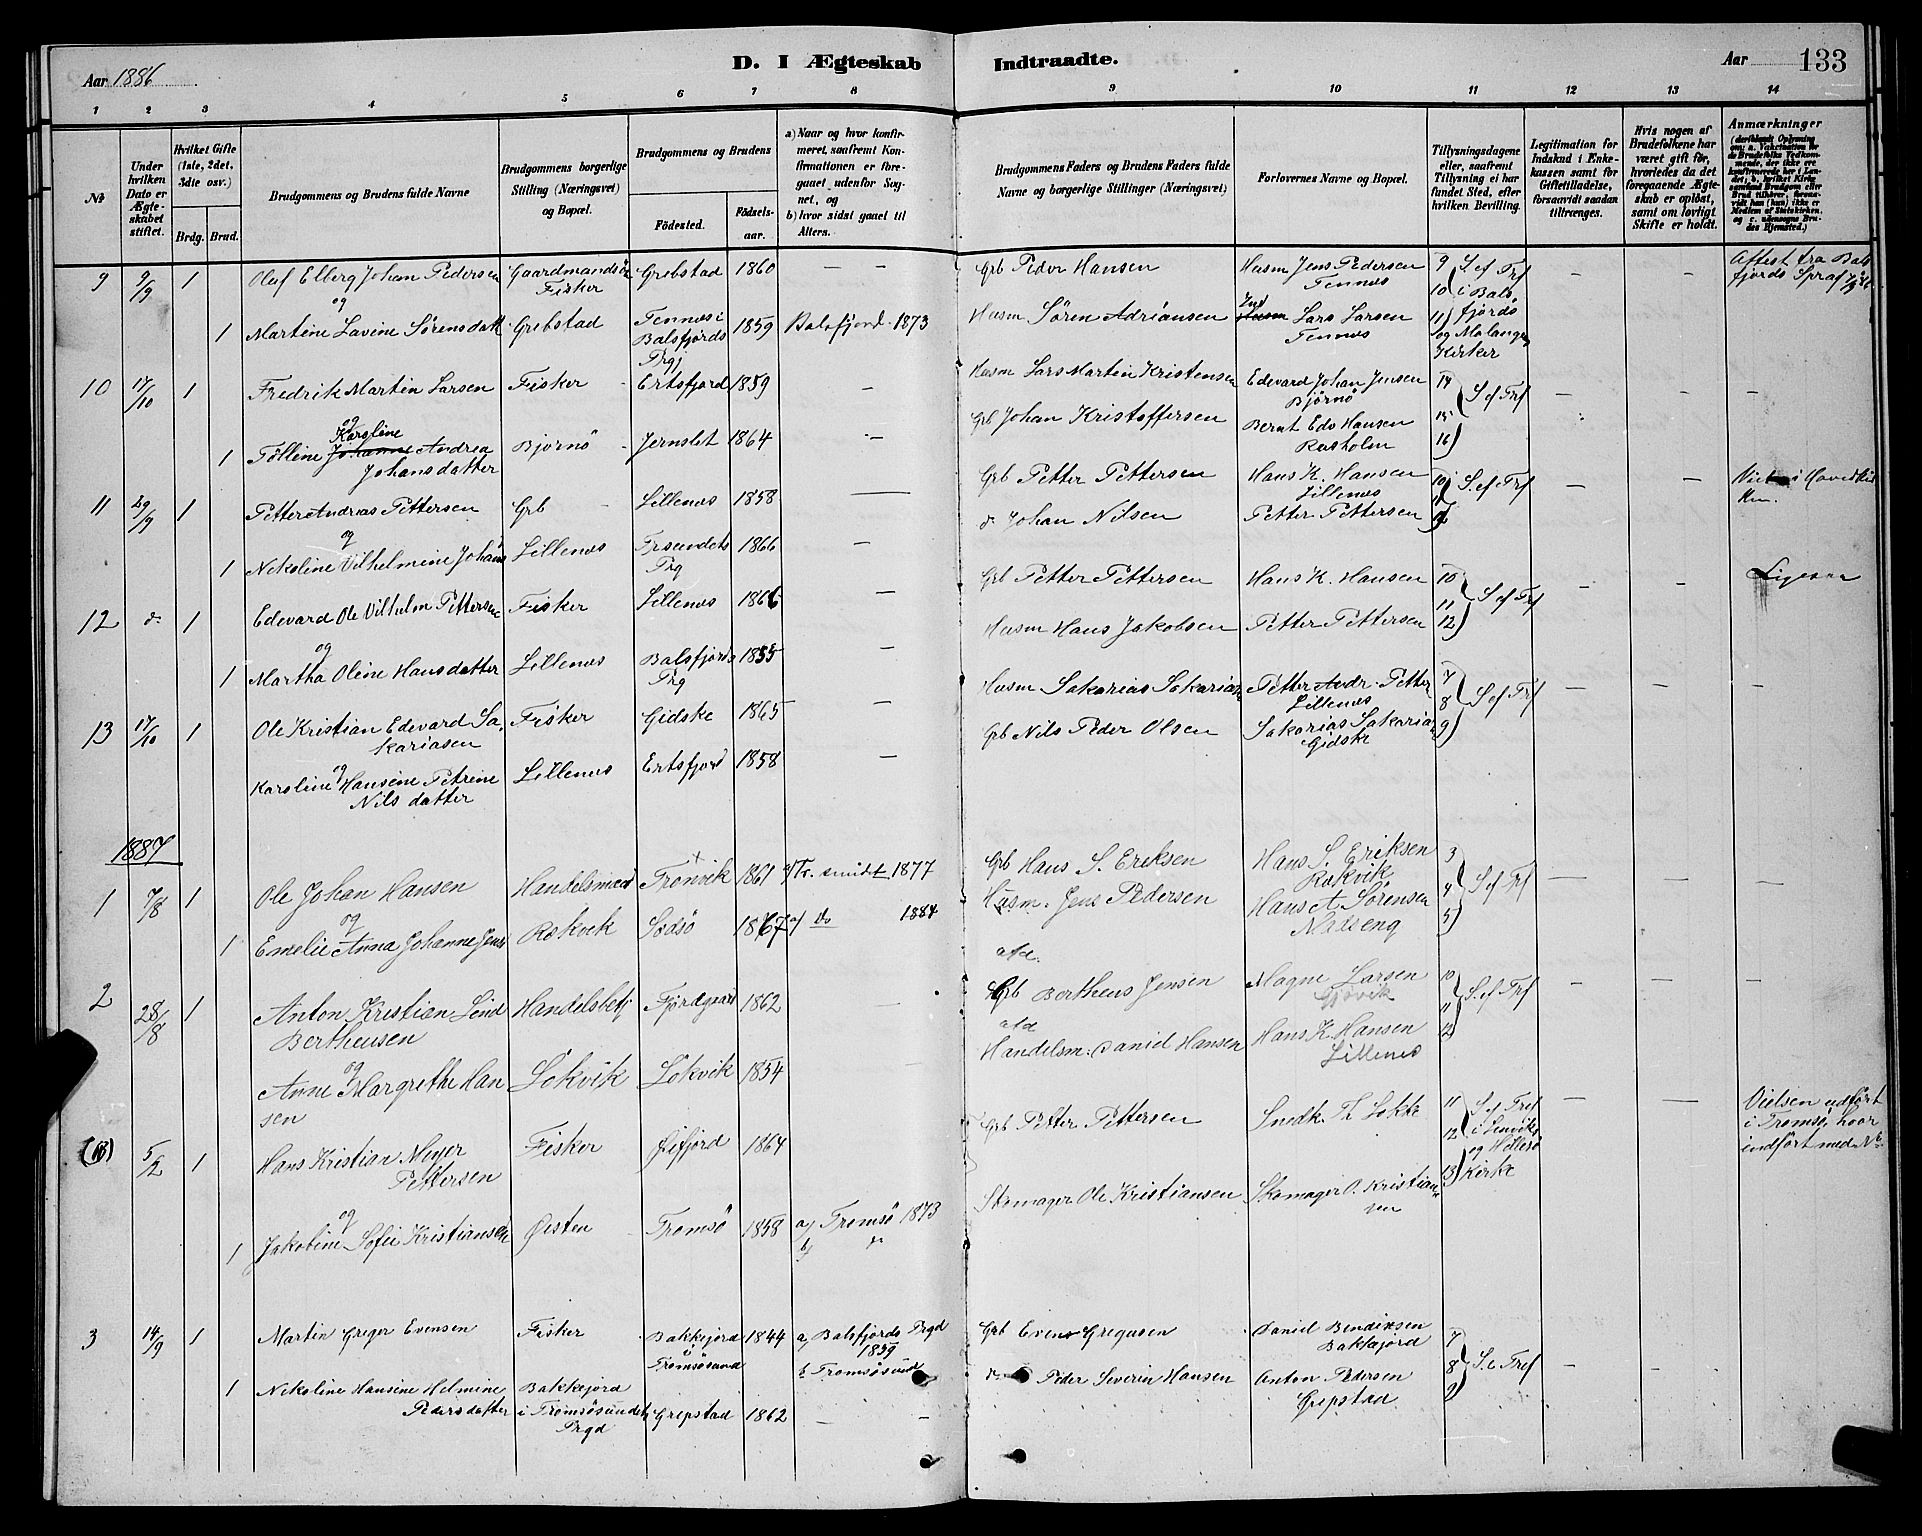 Aar 1886
D. I Ægteskab
Indtraadte.
Aar 133
1 2 3 4 5 6 7 8 9 10 11 12 13 14
No
Under hvilken Dato er Ægteskabet stiftet.
Hvilket Gifte (1ste, 2det, 3die osv.)
Brdg. Brud.
Brudgommens og Brudens fulde Navne
Brudgommens borgerlige Stilling (Næringsvei) og Bopæl.
Brudgommens og Brudens
Fødested.
Fødselsaar.
a) Naar og hvor konfirmeret, saafremt Konfirmationen er foregaaet udenfor Sognet, og
b) hvor sidst gaaet til Alters.
Brudgommens Faders og Brudens Faders fulde Navne og borgerlige Stillinger (Næringsvei)
Forlovernes Navne og Bopæl.
Tillysningsdagene eller, saafremt Tillysning ei har fundet Sted, efter hvilken Bevilling.
Legitimation for Indskud i Enkekassen samt for Giftetilladelse, forsaavidt saadan tiltrænges.
Hvis nogen af Brudefolkene har været gift før, hvorledes da det foregaaende Ægteskab er opløst, samt om lovligt Skifte er holdt.
Anmærkninger
9 9/9 1 Oluf Elberg Johan Pedersen Gaardmandsön Fisker Grebstad 1860 — — Grb Peder Hansen Husm Jens Pedersen Tennes 9 S. ef Trf — — Attest fra Balsfjords Spraf
og
1 Martine Lavine Sørensdatt Grebstad Tennes i Balsfjords Prgj 1859 Balsfjord 1873 Husm Sören Adriansen Ind Lars Larsen Tennes 10 11 i Balsfjords og Malangen Kirker
10 17/10 1 Fredrik Martin Larsen Fisker Ertsfjord 1859 — Husm Lars Martin Kristensen Edevard Johan Jensen Björnö 14 S ef Trf — — —
og
1 Tolline Karoline Johanne Andrea Johansdatter Bjornö Jernslet 1864 — Grb Johan Kristoffersen Bernt Edv Hansen Rosholm 15 16
11 29/9 1 Petter Andreas Pettersen Grb Lillenes 1858 — Grb Petter Pettersen Hans K. Hansen Lillenes 10 S. ef Trf — —
og
1 Nikoline Vilhelmine Johans Lillenes Trsundets Prg 1866 — d Johan Nilsen Petter Pettersen
12 d 1 Edevard Ole Vilhelm Pettersen Fisker Lillenes 1866 — Grb Petter Pettersen Hans K. Hansen 10 S ef Trf — — Ligesaa
og
1 Martha Oline Hansdatter Lillenes Balsfjords Prg 1855 — Husm Hans Jakobsen Petter Pettersen 11 12
13 17/10 1 Ole Kristian Edevard Sakariasen Fisker Gidske 1865 — Husm Sakarias Sakarias Petter Andr. Petter Lillenes 7 S ef Trf — — —
og
Karoline Hansine Petrine Nilsdatter Lillenes Ertsfjord 1858 — Grb Nils Peder Olsen Sakarias Sakarias Gidske 8 9
1887
1 7/8 1 Ole Johan Hansen Handelsmand Tronvik 1861 a/ Tr. sundet 1877 Grb Hans S. Eriksen Hans S. Eriksen Rakvik 3 S ef Trf — — —
og
1 Emelie Anna Johanne Jens Rakvik Sodsö 1867 a/ do 1884 Husm. Jens Pedersen Hans A Sörensen 4 5
2 28/8 1 Anton Kristian Lind Bertheusen Handelsbetj Fjordgaard 1862 — afd. Grb Bertheus Jensen Magne Larsen Gjövik 10 S. ef Trf — — —
og
Anne Margrethe Hansen Lökvik Lökvik 1854 — afd Handelsm. Daniel Hansen Hans K. Hansen Lillenes 11 12
5/2 1 Hans Kristian Meyer Pettersen Fisker Öifjord 1864 Grb Petter Pettersen Snedk. Th Lokke 11 S. ef Tref — — Vielsen udfört i Tromsö, hvor indfört med No
og
1 Jakobine Sofie Kristiansen Øisten Tromsö 1858 a/ Tromsö 1873 b/ d Skomager Ole Kristiansen Skomager O. Kristiansen 12 13 i Lenviks og Hillesö Kirke
3 14/9 1 Martin Greger Evensen Fisker Bakkejord i Tromsösund 1844 a/ Balsfjords Prgd 1859 b Tromsösund Grb Even Gregusen Daniel Bendiksen Bakkejord 7 S. e Tref — — —
1 Nikoline Hansine Helmine Pedersdatter Bakkejord i Tromsösundets Prgd Grepstad 1862 — — d Peder Severin Hansen Anton Pedersen Grepstad 8 9